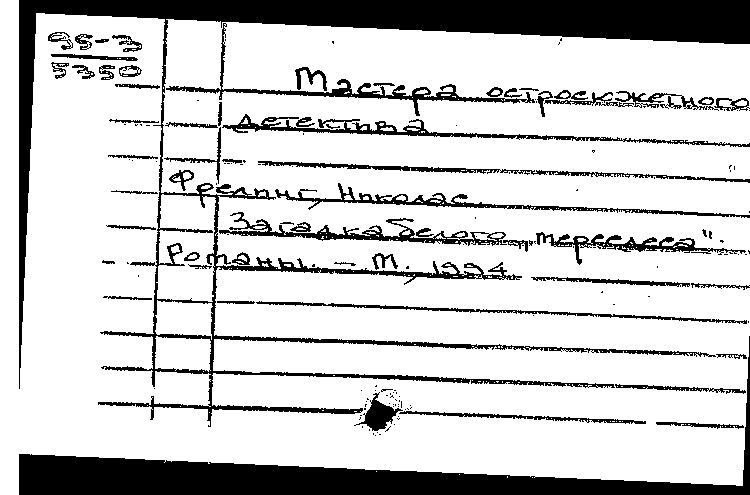 95-3
5350
Мастера остросюжетного
детектива
Фрелинг, Николас.
Загадка белого „мерседеса".
Романы. – М., 1994